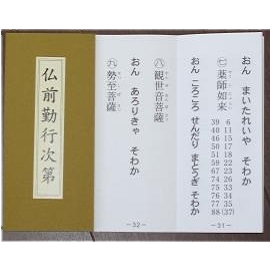 おん まいたれいや そわか
㈦薬師如来
39 6
40 11
46 15
50 17
51 18
59 22
67 23
74 26
75 33
76 34
77 35
88 (37)
おん ころころ せんだり まとうぎ そわか
−31−
㈧観世音菩薩
おん あろりきゃ そわか
㈨勢至菩薩
−32−
仏前勤行次第